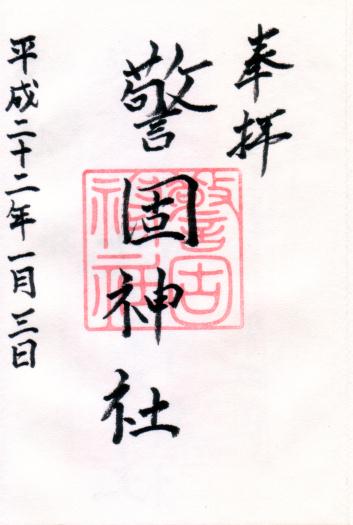 奉拝
警固神社
警固神社
平成二十二年一月三日